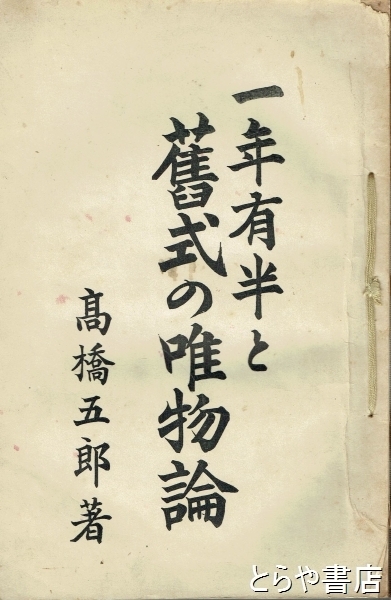 一年有半と
舊式の唯物論
髙橋五郎著
とらや書店